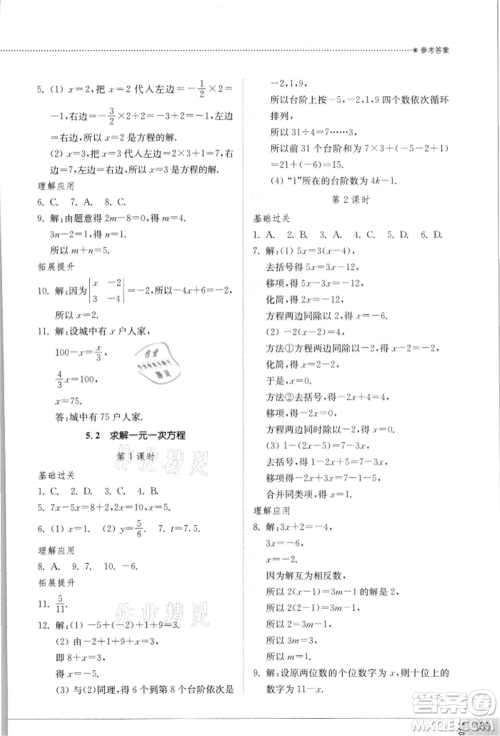 参考答案
5. (1) x=2,把 x=2 代入左边=-1/2×2=
-1,右边=-3/2×2+2=-3+2=-1,左边
=右边,所以 x=2 是方程的解.
(2) x=2,把 x=2 代入左边=2×3+1=7,
右边=7,左边=右边,所以 x=2 是方程的解.
理解应用
6. C. 7. D. 8. A.
9. 解:由题意得 2m-8=0,
3n-2=1,解得 m=4,n=1.
所以 m+n=5.
拓展提升
10. 解:因为|x -2; 3 -4|=-2,所以-4x+6=-2,
所以 x=2.
11. 解:设城中有 x 户人家,
100-x=x/3,
4/3x=100,
x=75.
答:城中有 75 户人家.
5.2 求解一元一次方程
第 1 课时
基础过关
1. C. 2. B. 3. D. 4. A.
5. 7x-5x=8+2,2x=10,x=5.
6. (1) x=2. (2) y=5/6. 7. t=7.5.
理解应用
8. A. 9. 7. 10. -6.
拓展提升
11. 5/11.
12. 解:(1) -5+(-2)+1+9=3.
(2)由(1)得 -2+1+9+x=3,
即 8+x=3,
所以 x=-5.
(3)与(2)同理,得到第 6 个到第 8 个台阶依次为
-2,1,9,
所以台阶上按-5,-2,1,9 四个数依次循环
排列,
所以 31÷4=7……3,
所以前 31 个台阶和为 7×3+1+(-2)+(-5)
=21+(-6)=15.
(4)“1”所在的台阶数为 4k-1.
第 2 课时
基础过关
1. A. 2. D. 3. C. 4. B. 5. A. 6. D.
7. 解:(1) 5x=3(x-4),
去括号得 5x=3x-12,
移项,得 5x-3x=-12,
化简,得 2x=-12,
方程两边同除以 2,得 x=-6.
(2) -2(x-1)=4,
方法①方程两边同除以-2,得 x-1=-2,
化简,得 x=-2+1,
于是,得 x=-1.
方法②去括号,得-2x+2=4,
移项,得-2x=4-2,
化简,得-2x=2,
方程两边同除以-2,得 x=-1.
(3) 2(x+5)=7-3x,
去括号,得 2x+10=7-3x,
移项,得 2x+3x=7-10,
合并同类项,得 5x=-3,
理解应用
8. 解:3x+2=-4,
3x=-6,
x=-2.
因为解互为相反数,
所以 2(x-1)=3m-1 的解为 x=2,
所以 2(2-1)=3m-1,
所以 m=1.
9. 解:设原两位数的个位数字是 x,则十位上的
数字为 11-x,
作业精灵
作业精灵